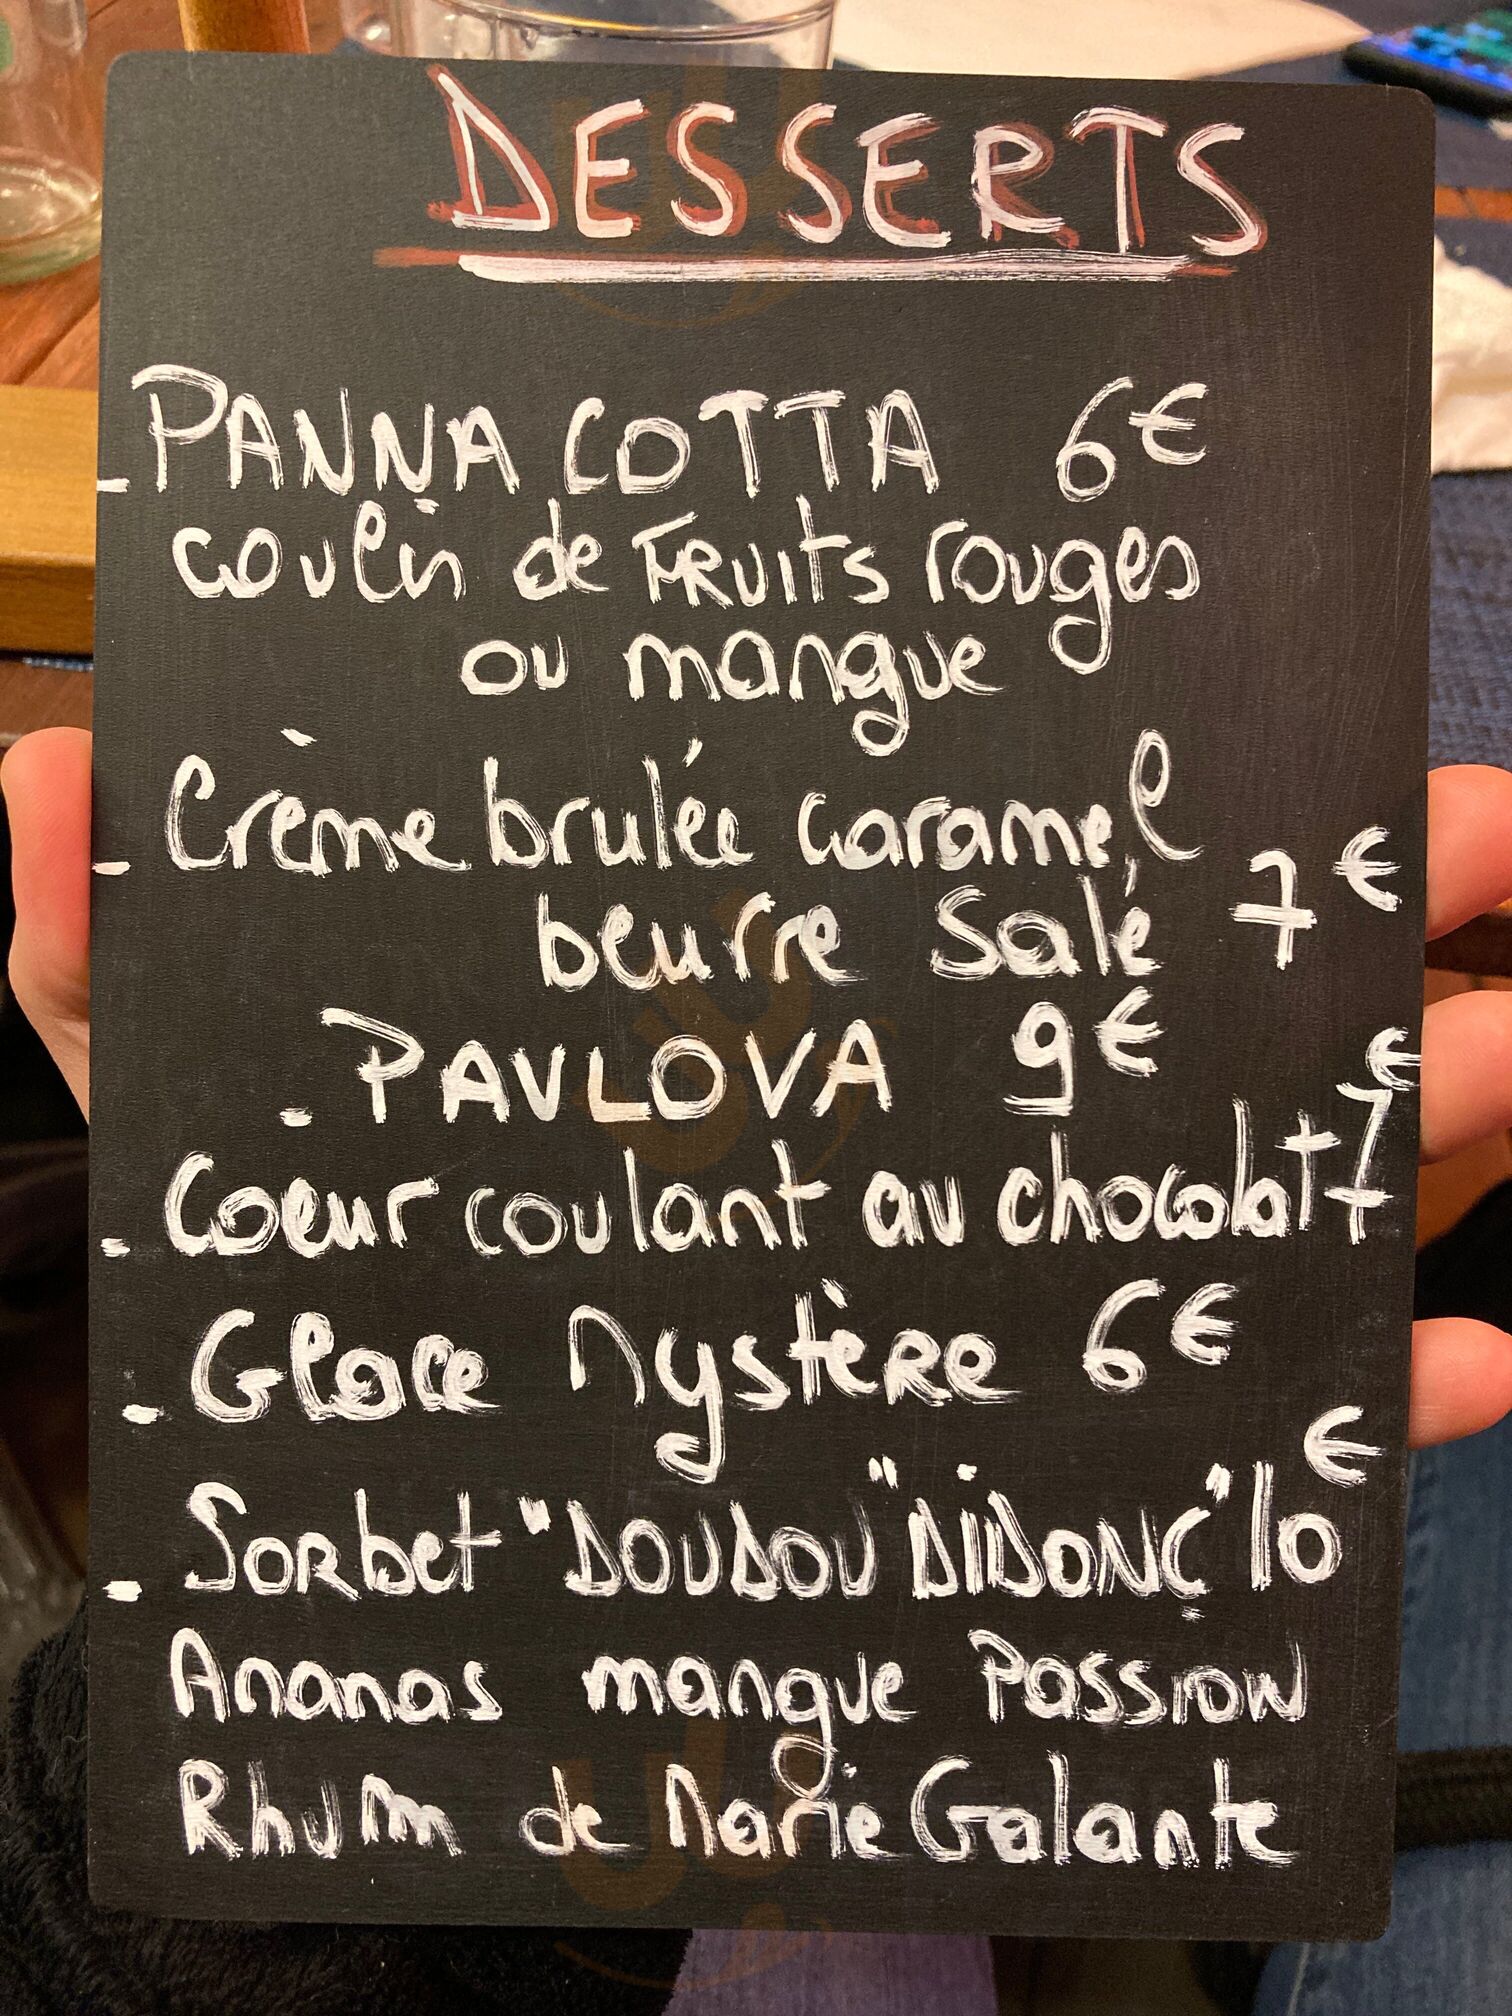 DESSERTS
- PANNA COTTA 6€
coulis de FRUITS rouges
ou mangue
- Crème brulée caramel
beurre salé 7€
- PAVLOVA 9€
- Coeur coulant au chocolat 7€
- Glace Mystère 6€
- Sorbet "DOUDOU" "DIDONÇ" 10€
Ananas mangue Passion
Rhum de Marie Galante